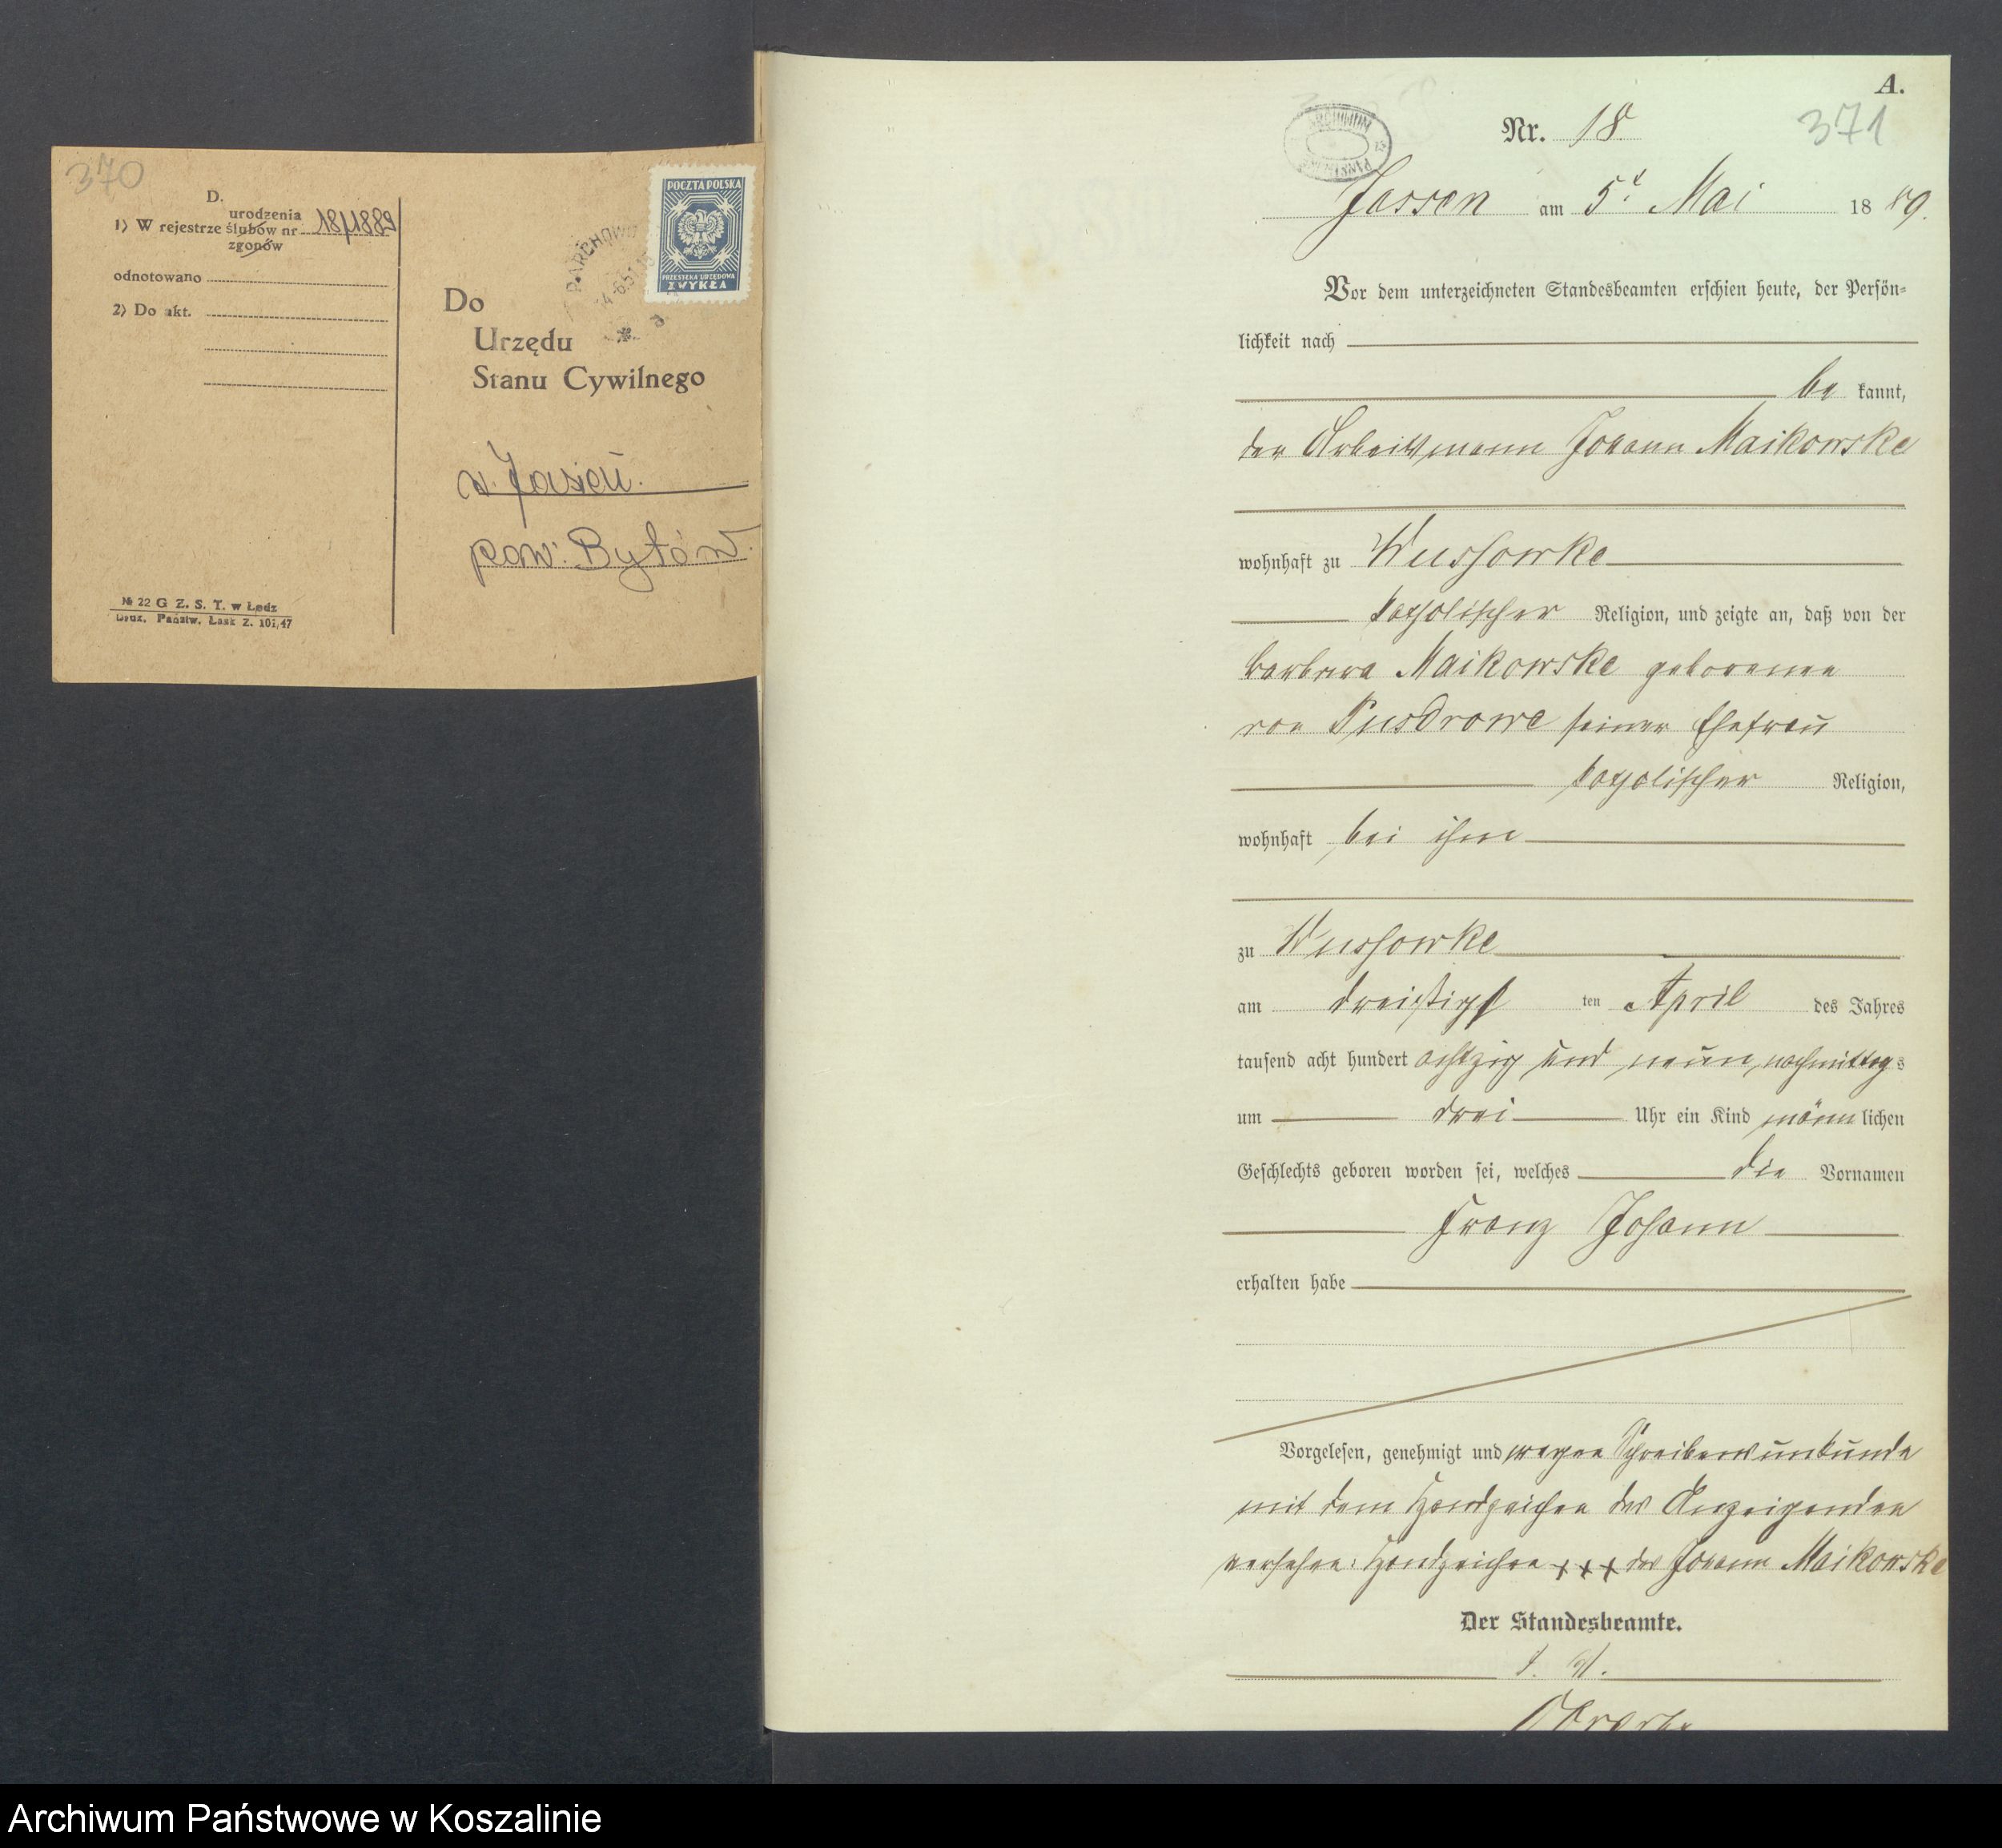 370
D.
urodzenia
1) W rejestrze ślubów nr 18/1889
zgonów
odnotowano
2) Do akt.
№ 22 G Z. S. T. w Łodz
Druk. Państw. Łask Z. 101/47
POCZTA POLSKA
PRZESYŁKA URZĘDOWA
ZWYKŁA
PARCHOWO
Do
Urzędu
Stanu Cywilnego
w Jasień.
pow. Bytów.
A.
371
ARCHIWUM
Nr. 18
Jassen am 5t Mai 1889.
Vor dem unterzeichneten Standesbeamten erschien heute, der Persön-
lichkeit nach
be kannt,
der Arbeitsmann Johann Maikowske
wohnhaft zu Wussowke
katholischer Religion, und zeigte an, daß von der
Barbara Maikowske geborenen
von Pusdrowe seiner Ehefrau
katholischer Religion,
wohnhaft bei ihm
zu Wussowke
am dreißigst ten April des Jahres
tausend acht hundert achtzig und neun, nachmittags
um drei Uhr ein Kind männlichen
Geschlechts geboren worden sei, welches die Vornamen
Franz Johann
erhalten habe
Vorgelesen, genehmigt und wegen Schreibensunkunde
mit dem Handzeichen des Anzeigenden
versehen: Handzeichen +++ des Johann Maikowske
Der Standesbeamte.
Archiwum Państwowe w Koszalinie